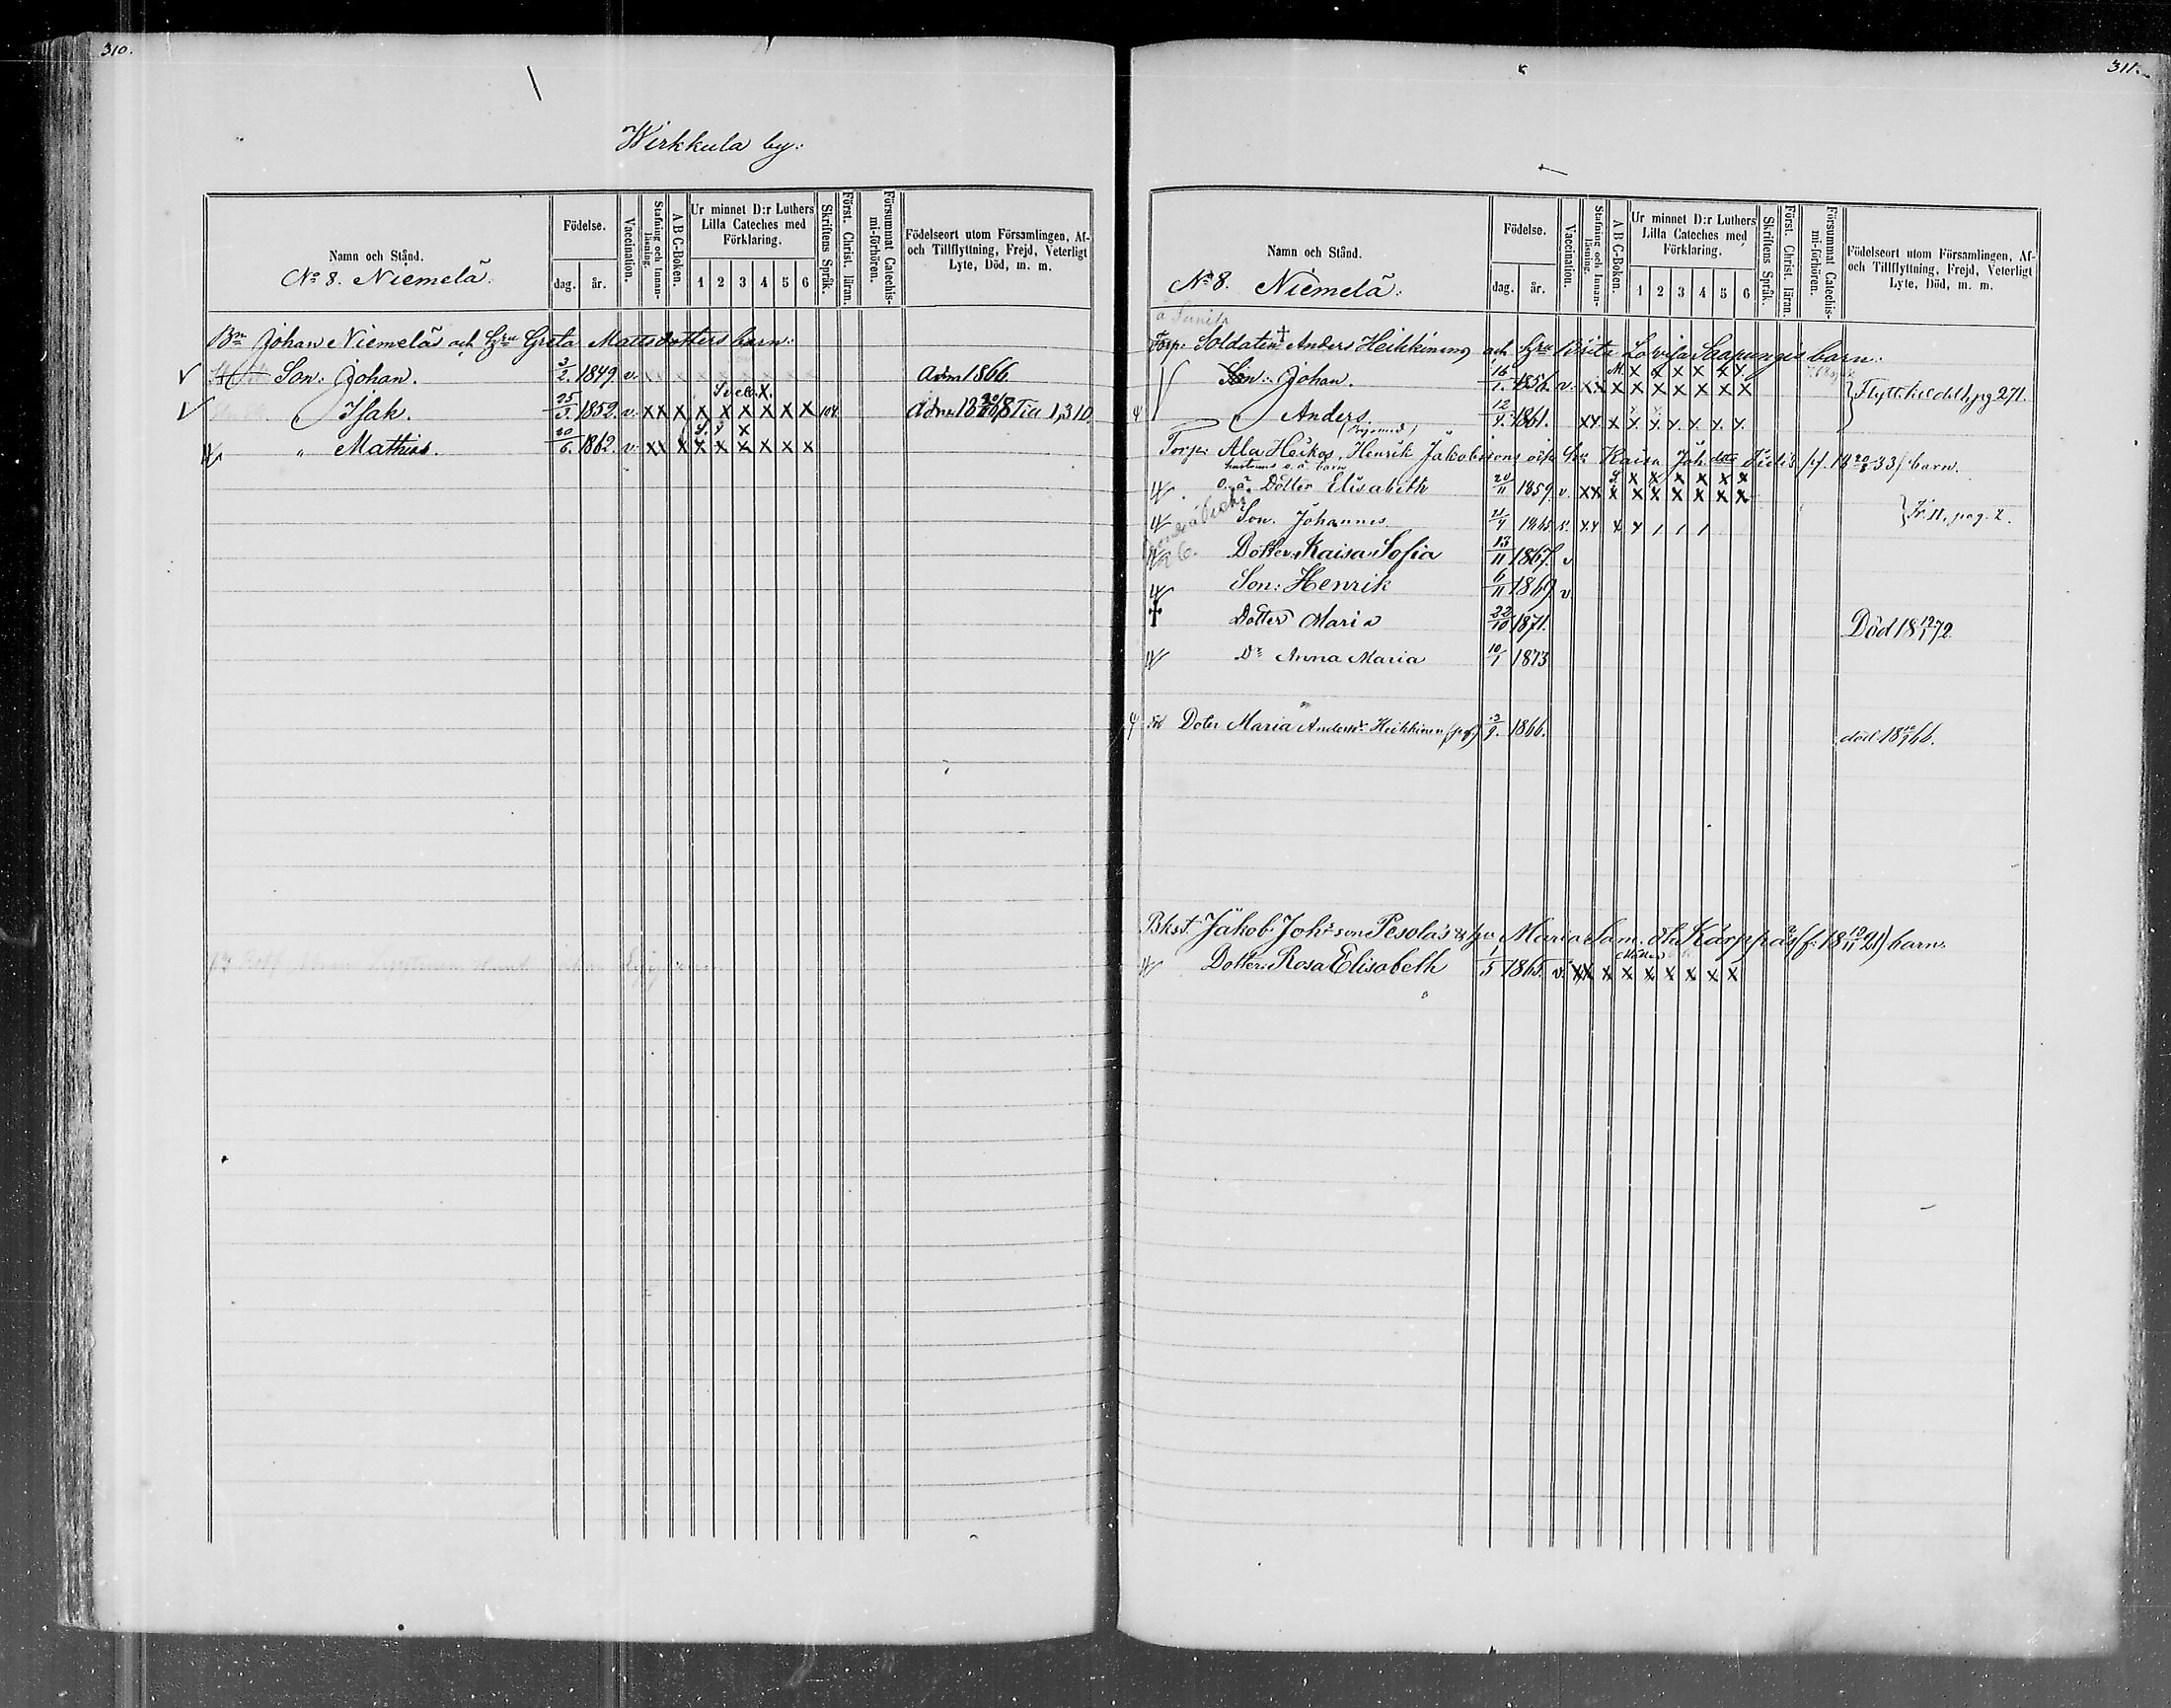 310.
Wirkkula by:
Namn och Stånd.
Födelse.
dag.
år.
Vaccination.
Stafning och Innan-läsning.
A B C-Boken.
Ur minnet D:r Luthers Lilla Cateches med Förklaring.
1 2 3 4 5 6
Skriftens Språk.
Först. Christ. läran.
Försummat Catechis-mi-förhören.
Födelseort utom Församlingen, Af- och Tillflyttning, Frejd, Veterligt Lyte, Död, m. m.
No 8. Niemelä.
Bn Johan Niemeläs och Hru Greta Mattsdotters barn:
Son: Johan. 3/2. 1849 v. Adm 1866
" Isak. 25/3. 1852. v. XX X X X X X X X Adm 18
" Mathias. 20/6. 1862. v. XX X X X X X X X
311.
Namn och Stånd.
Födelse.
dag.
år.
Vaccination.
Stafning och Innan-läsning.
A B C-Boken.
Ur minnet D:r Luthers Lilla Cateches med Förklaring.
1 2 3 4 5 6
Skriftens Språk.
Först. Christ. läran.
Försummat Catechis-mi-förhören.
Födelseort utom Församlingen, Af- och Tillflyttning, Frejd, Veterligt Lyte, Död, m. m.
No 8. Niemelä:
Torp: Soldaten Anders Heikkinens och Hru Brita Lovisa barn:
Son: Johan. 16/1. 1856. v. XX X X X X X X X
" Anders 12/4. 1861. XX X X X X X X X
pg 271.
Torp: Ala Heikas, Henrik Jakobssons och Hu Kaisa Joh dtr barn.
o.ä. Dotter Elisabeth 20/11 1859. v. XX X X X X X X X
Son. Johannes
Dotter Kaisa Sofia 13/11 1867. v
Son: Henrik 6/11 1869 v
Dotter Maria 22/10 1871. Död 18 12/1 72.
Dr Anna Maria 10/1 1873
Doter Maria Andersdr Heikkinen 1866. död 18 66.
Bkst. Jakob Johsson Pesolas & Maria Sam. dtr Karppas barn.
Dotter: Rosa Elisabeth 1/5 1865. v. XX X X X X X X X